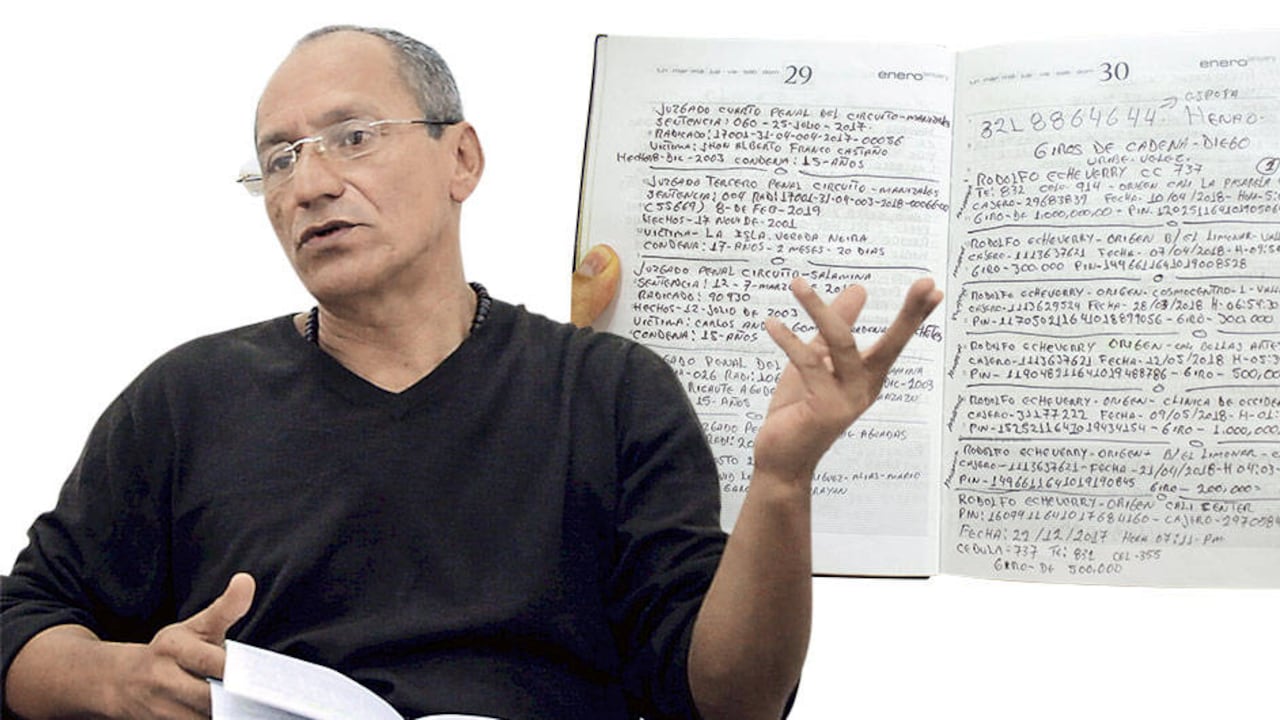 29
enero
JUZGADO CUARTO PENAL DEL CIRCUITO-MANIZALES
SENTENCIA: 060-25-JULIO-2017.
RADICADO: 17001-31-04-004-2017-00056
VICTIMA: JHON ALBERTO FRANCO CASTAÑO
HECHOS-DIC-2003 CONDENA: 15-AÑOS
JUZGADO TERCERO PENAL CIRCUITO-MANIZALES
SENTENCIA: 004 RAD: 17001-31-04-003-2018-0006600
(55669) 8-DE FEB-2019
HECHOS-17 NOV DE-2001
VICTIMA-LA ISLA VEREDA NEIRA
CONDENA: 17-AÑOS-2 MESES-20 DIAS
JUZGADO PENAL CIRCUITO-SALAMINA
SENTENCIA: 12-7-MARZO
RADICADO: 90930
HECHOS-12-JULIO DE 2003
VICTIMA: CARLOS
CONDENA: 15-AÑOS
GADO PENAL DEL
HA-026 RADI:106
DIC-2003
15-AÑOS
DE AGUADAS
30
enero
ESPOSA
3218864644 → HENAO-
GIROS DE CADENA-DIEGO
URIBE VELEZ.
RODOLFO ECHEVERRY CC 737
TE: 832 CELO-914-ORIGEN CALI LA PASARELA
CAJERO-29683839 FECHA-10/04/2018-HORA-5:
GIRO-DE 1.000,000.00-PIN-
RODOLFO ECHEVERRY-ORIGEN B/EL LIMONAR-VAL
CAJERO-1113637621 FECHA-07/04/2018-H-09:5
GIRO-300.000 PIN-1496611641019008528
RODOLFO ECHEVERRY-ORIGEN-COSMOCENTRO-1-VALL
CAJERO-1113629529 FECHA-28/03/2018 H-06:59:3
PIN-117050211641018899056-GIRO-300.000
RODOLFO ECHEVERRY ORIGEN-CAL BELLAS ARTE
CAJERO-1113637621 FECHA-12/05/2018-H-05:
PIN-119048211641019488786-GIRO-500,00
RODOLFO ECHEVERRY-ORIGEN-CLINICA DE OCCIDE
CAJERO-31177222 FECHA-09/05/2018-H-01:
PIN-1525211641019434154-GIRO-1.000,000
RODOLFO ECHEVERRY-ORIGEN-B/EL LIMONAR-C
CAJERO-1113637621-FECHA-21/04/2018-H 04:03-
PIN-1496611641019190845 GIRO-200,000=
RODOLFO ECHEVERRY-ORIGEN CALI CENTER
PIN: 1609911641017684160-CAJERO-2970589
FECHA: 22/12/2017 HORA 07:11-PM
CEDULA-737 TE: 832 CEL-355
GIRO-DE 500,000